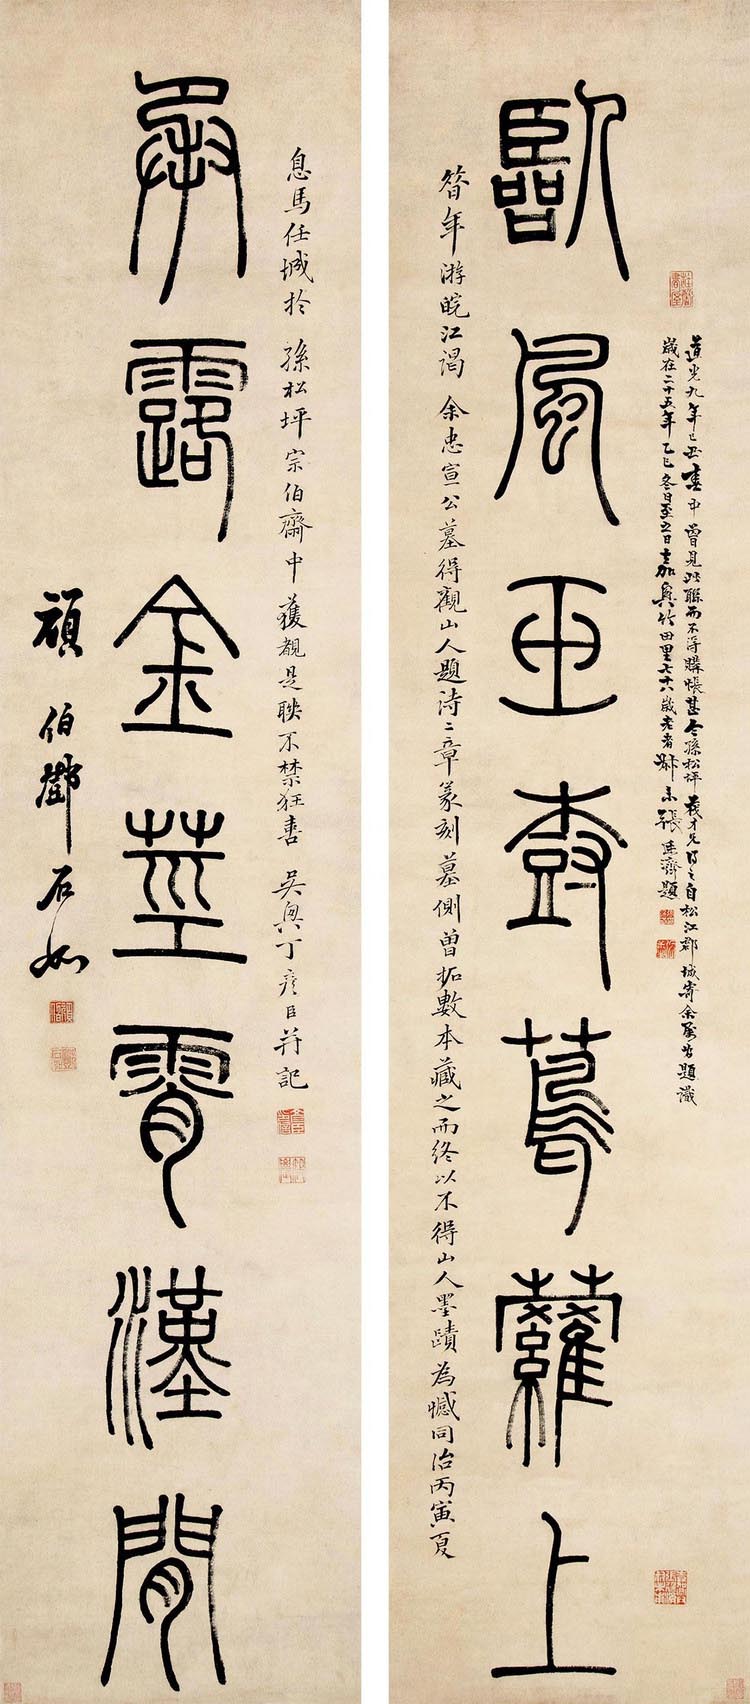 道光九年己丑春中曾見此聯而不得購悵甚今孫松坪茂才兄得之自松江郡城寄余屬為題識
歲在二十五年乙巳冬日至五日嘉興竹田里七十八歲老者叔未張廷濟題
臨風玉樹蔦蘿上
昔年游皖江謁余忠宣公墓得觀山人題詩二章篆刻墓側曾拓數本藏之而終以不得山人墨蹟為憾同治丙寅夏
息馬任城於孫松坪宗伯齋中獲覩是聯不禁狂喜吳興丁彥臣并記
承露金莖霄漢間
頑伯鄧石如